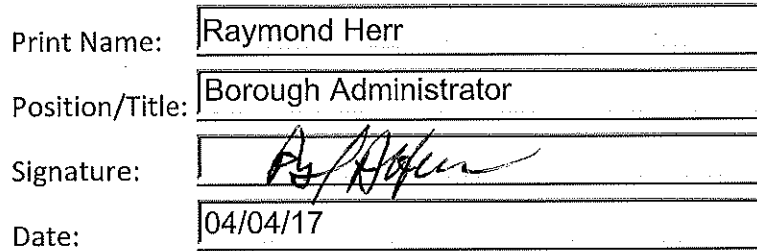 Print Name: Raymond Herr
Position/Title: Borough Administrator
Signature:
Date: 04/04/17